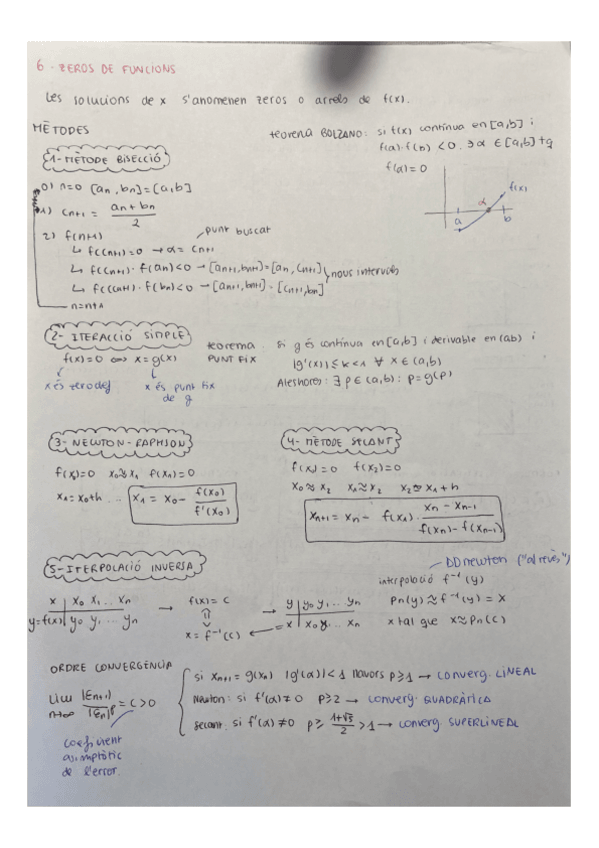 6 - ZEROS DE FUNCIONS
Les solucions de x s'anomenen zeros o arrels de f(x).
MÈTODES
teorema BOLZANO: si f(x) contínua en [a,b] i
f(a)·f(b) < 0. ∃ α ∈ [a,b] tq
f(α) = 0
f(x)
α
a
b
1- MÈTODE BISECCIÓ
0) n=0 [an, bn] = [a,b]
1) Cn+1 = an + bn / 2
punt buscat
2) f(n+1)
↳ f(Cn+1) = 0 → α = Cn+1
↳ f(Cn+1) · f(an) < 0 → [an+1, bn+1] = [an, Cn+1]
↳ f(Cn+1) · f(bn) < 0 → [an+1, bn+1] = [Cn+1, bn]
nous intervals
n = n+1
2- ITERACCIÓ SIMPLE
f(x) = 0 ⟺ x = g(x)
x és zero de f
x és punt fix
de g
teorema
PUNT FIX
si g és contínua en [a,b] i derivable en (ab) i
|g'(x)| ≤ k < 1 ∀ x ∈ (a,b)
Aleshores: ∃ p ∈ (a,b) : p = g(p)
3- NEWTON - RAPHSON
f(x)=0 x0 ≈ x1 f(x1) = 0
x1 = x0+h ... x1 = x0 - f(x0) / f'(x0)
4- MÈTODE SECANT
f(x) = 0 f(x2) = 0
x0 ≈ x2 x1 ≈ x2 x2 ≈ x1 + h
xn+1 = xn - f(x1) · xn - xn-1 / f(xn) - f(xn-1)
5- ITERPOLACIÓ INVERSA
x | x0 x1 ... xn
y=f(x) | y0 y1 ... yn
→ f(x) = c
x = f⁻¹(c)
→ y | y0 y1 ... yn
x | x0 x1 ... xn
DD newton ("al revés")
interpolació f⁻¹(y)
Pn(y) ≈ f⁻¹(y) = x
x tal que x ≈ Pn(c)
ORDRE CONVERGÈNCIA
lim n→∞ |En+1| / |En|^p = C > 0
coeficient
asimptòtic
de l'error.
si xn+1 = g(xn) |g'(α)| < 1 llavors p ≥ 1 → converg. LINEAL
Newton: si f'(α) ≠ 0 p ≥ 2 → converg. QUADRÀTICA
secant. si f'(α) ≠ 0 p ≥ 1+√5 / 2 > 1 → converg SUPERLINEAL